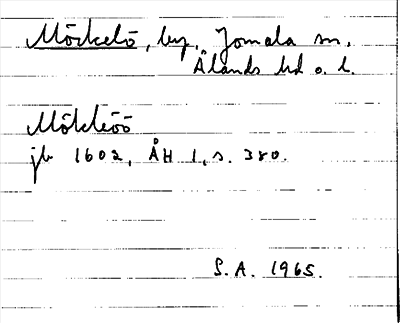 Mörckelö, by, Jomala sn,
Ålands hd o. l.
Mökleöö
jb 1602, ÅH 1, s. 380.
S.A. 1965.